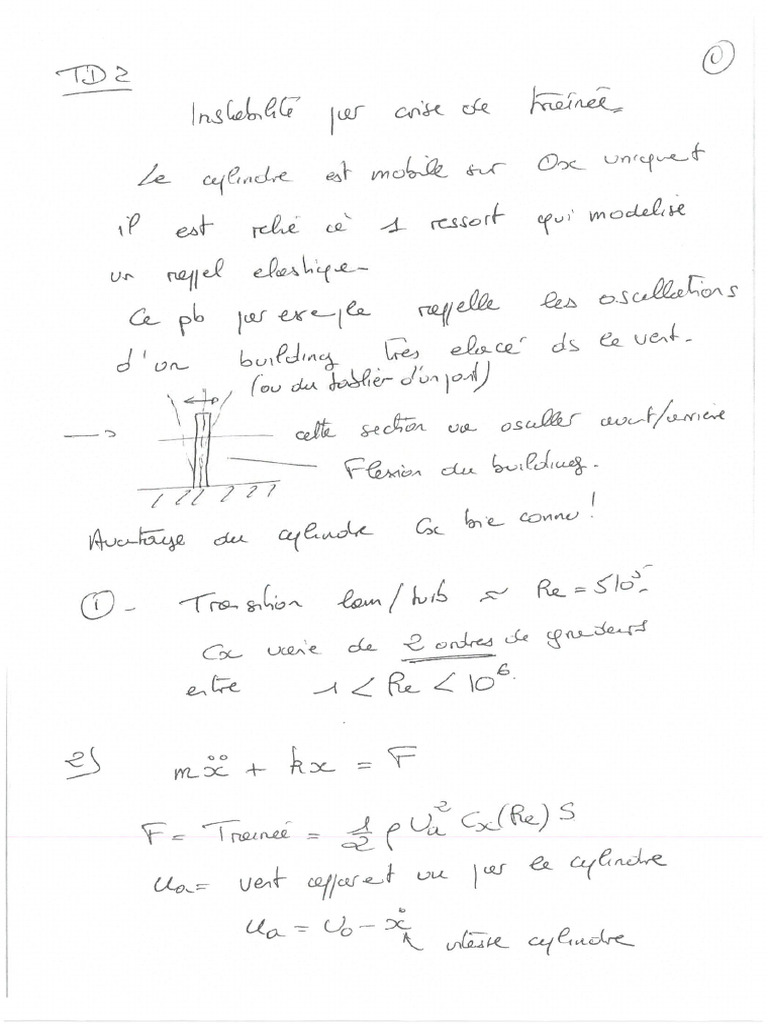 TD2
①
Instabilité par crise de traînée.
Le cylindre est mobile sur Ox uniquet
il est relié à 1 ressort qui modelise
un rappel elastique-
Ce pb par exemple rappelle les oscillations
d'un building très elacé ds le vent-
(ou du tablier d'un pont)
cette section va osciller avant/arrière
Flexion du building.
Avantage du cylindre Cx bie connu!
① - Transition lam/turb ≈ Re = 5 10⁵-
Cx varie de 2 ordres de grandeurs
entre 1 < Re < 10⁶.
2) mẍ + kx = F
F = Trainée = 1/2 ρ Ua² Cx(Re) S
Ua = vent apparet vu par le cylindre
Ua = U0 - ẋ
vitesse cylindre